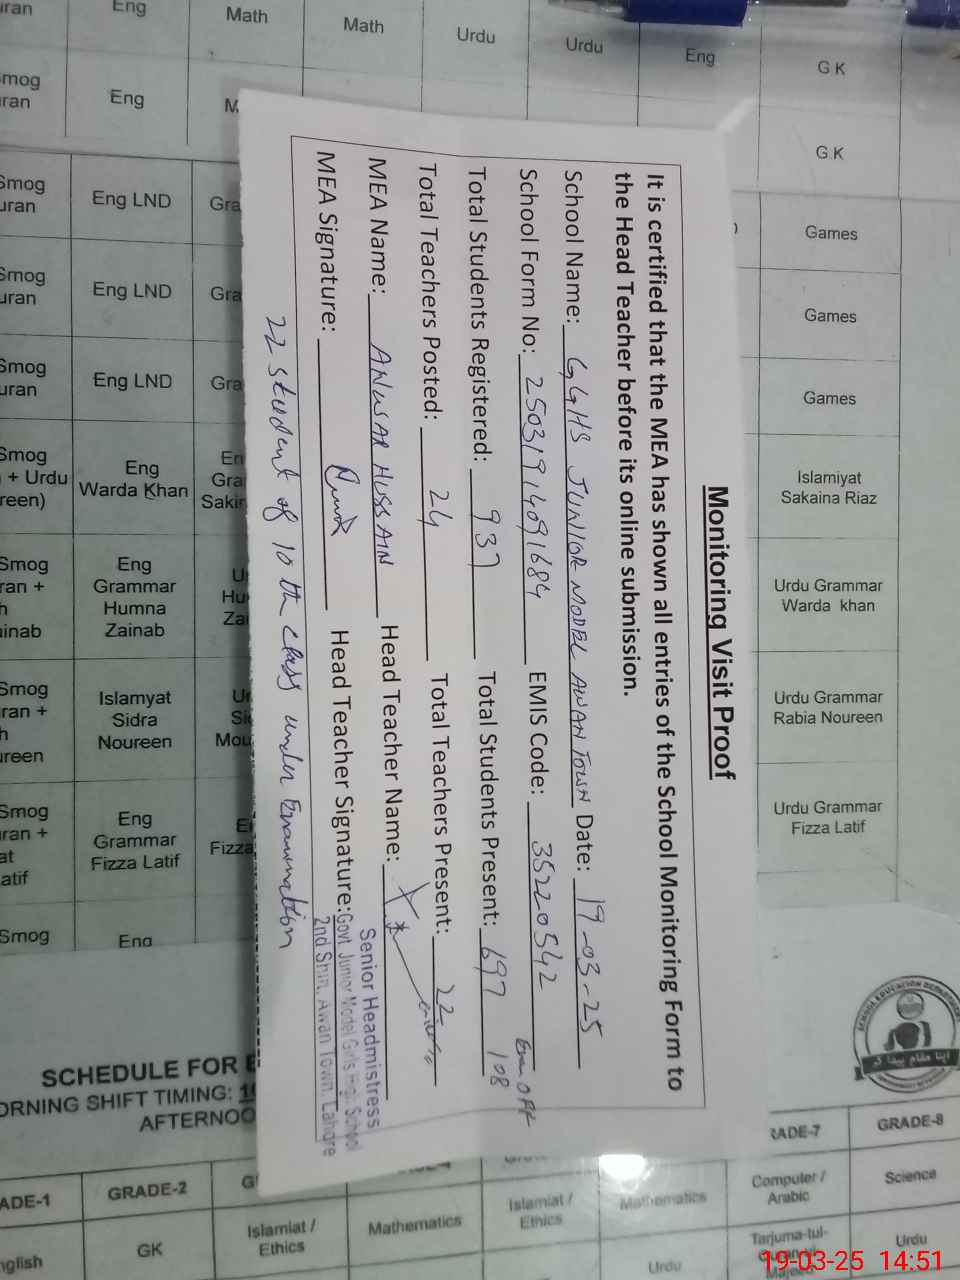 Monitoring Visit Proof
It is certified that the MEA has shown all entries of the School Monitoring Form to
the Head Teacher before its online submission.
School Name: GGHS JUNIOR MODEL AWAN TOWN Date: 19-03-25
School Form No: 25031914091684 EMIS Code: 35220542
Total Students Registered: 937 Total Students Present: 697 108 OFF
Total Teachers Posted: 24 Total Teachers Present: 22
MEA Name: ANWAR HUSSAIN Head Teacher Name:
MEA Signature: Head Teacher Signature:
Senior Headmistress
Govt. Junior Model Girls High School
2nd Shift, Awan Town, Lahore
22 student of 10th class under Examination
Eng Math Math Urdu Urdu Eng G K
Eng G K
Smog Eng LND Games
Smog Eng LND Games
Smog Eng LND Games
Smog
+ Urdu
Eng
Warda Khan
Islamiyat
Sakaina Riaz
Smog
Eng
Grammar
Humna
Zainab
Urdu Grammar
Warda khan
Smog
Islamyat
Sidra
Noureen
Urdu Grammar
Rabia Noureen
Smog
Eng
Grammar
Fizza Latif
Urdu Grammar
Fizza Latif
Smog Eng
SCHEDULE FOR
SHIFT TIMING:
GRADE-2 GRADE-8
GK
Islamiat /
Ethics
Mathematics
Islamiat /
Ethics
Mathematics
Computer /
Arabic
Science
Urdu
Tarjuma-tul-
Urdu
19-03-25 14:51